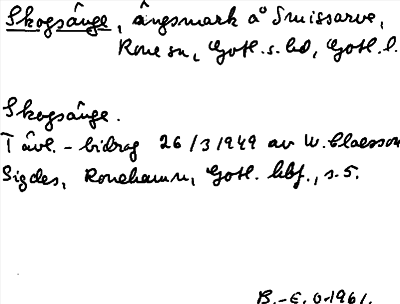 Skogsänge, ängsmark å Smissarve,
Rone sn, Gotl. s. hd, Gotl. l.
Skogsänge.
Tävl.-bidrag 26/3 1949 av W. Claesson
Sigdes, Ronehamn, Gotl. hbf., s. 5.
B.-E. O. 1961.